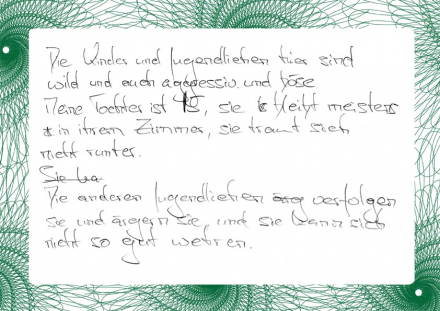 Die Kinder und Jugendlichen hier sind
wild und auch aggressiv und böse
Meine Tochter ist 15, sie bleibt meistens
in ihrem Zimmer, sie traut sich
nicht runter.
Sie ha
Die anderen Jugendlichen äng verfolgen
sie und ärgern sie, und sie kann sich
nicht so gut wehren.